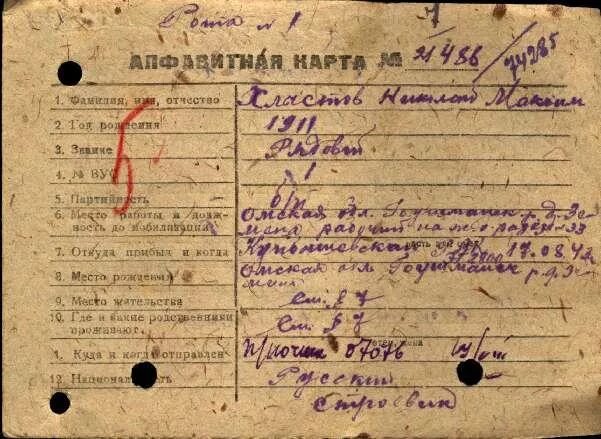 Рота № 1
7
АЛФАВИТНАЯ КАРТА № 21486/74285
1. Фамилия, имя, отчество Хластов Николай Максим
2. Год рождения 1911
3. Звание Рядовой
4. № ВУС 1
5. Партийность б/п
6. Место работы и долж- Омская обл.
ность до мобилизации рабочий
7. Откуда прибыл и когда Куйбышевский 17.08.42
8. Место рождения Омская обл.
9. Место жительства См. § 7
10. Где и какие родственники
проживают См. § 7
1. Куда и когда отправлен п/почта 07076
12. Национальность Русский
Строевик
5